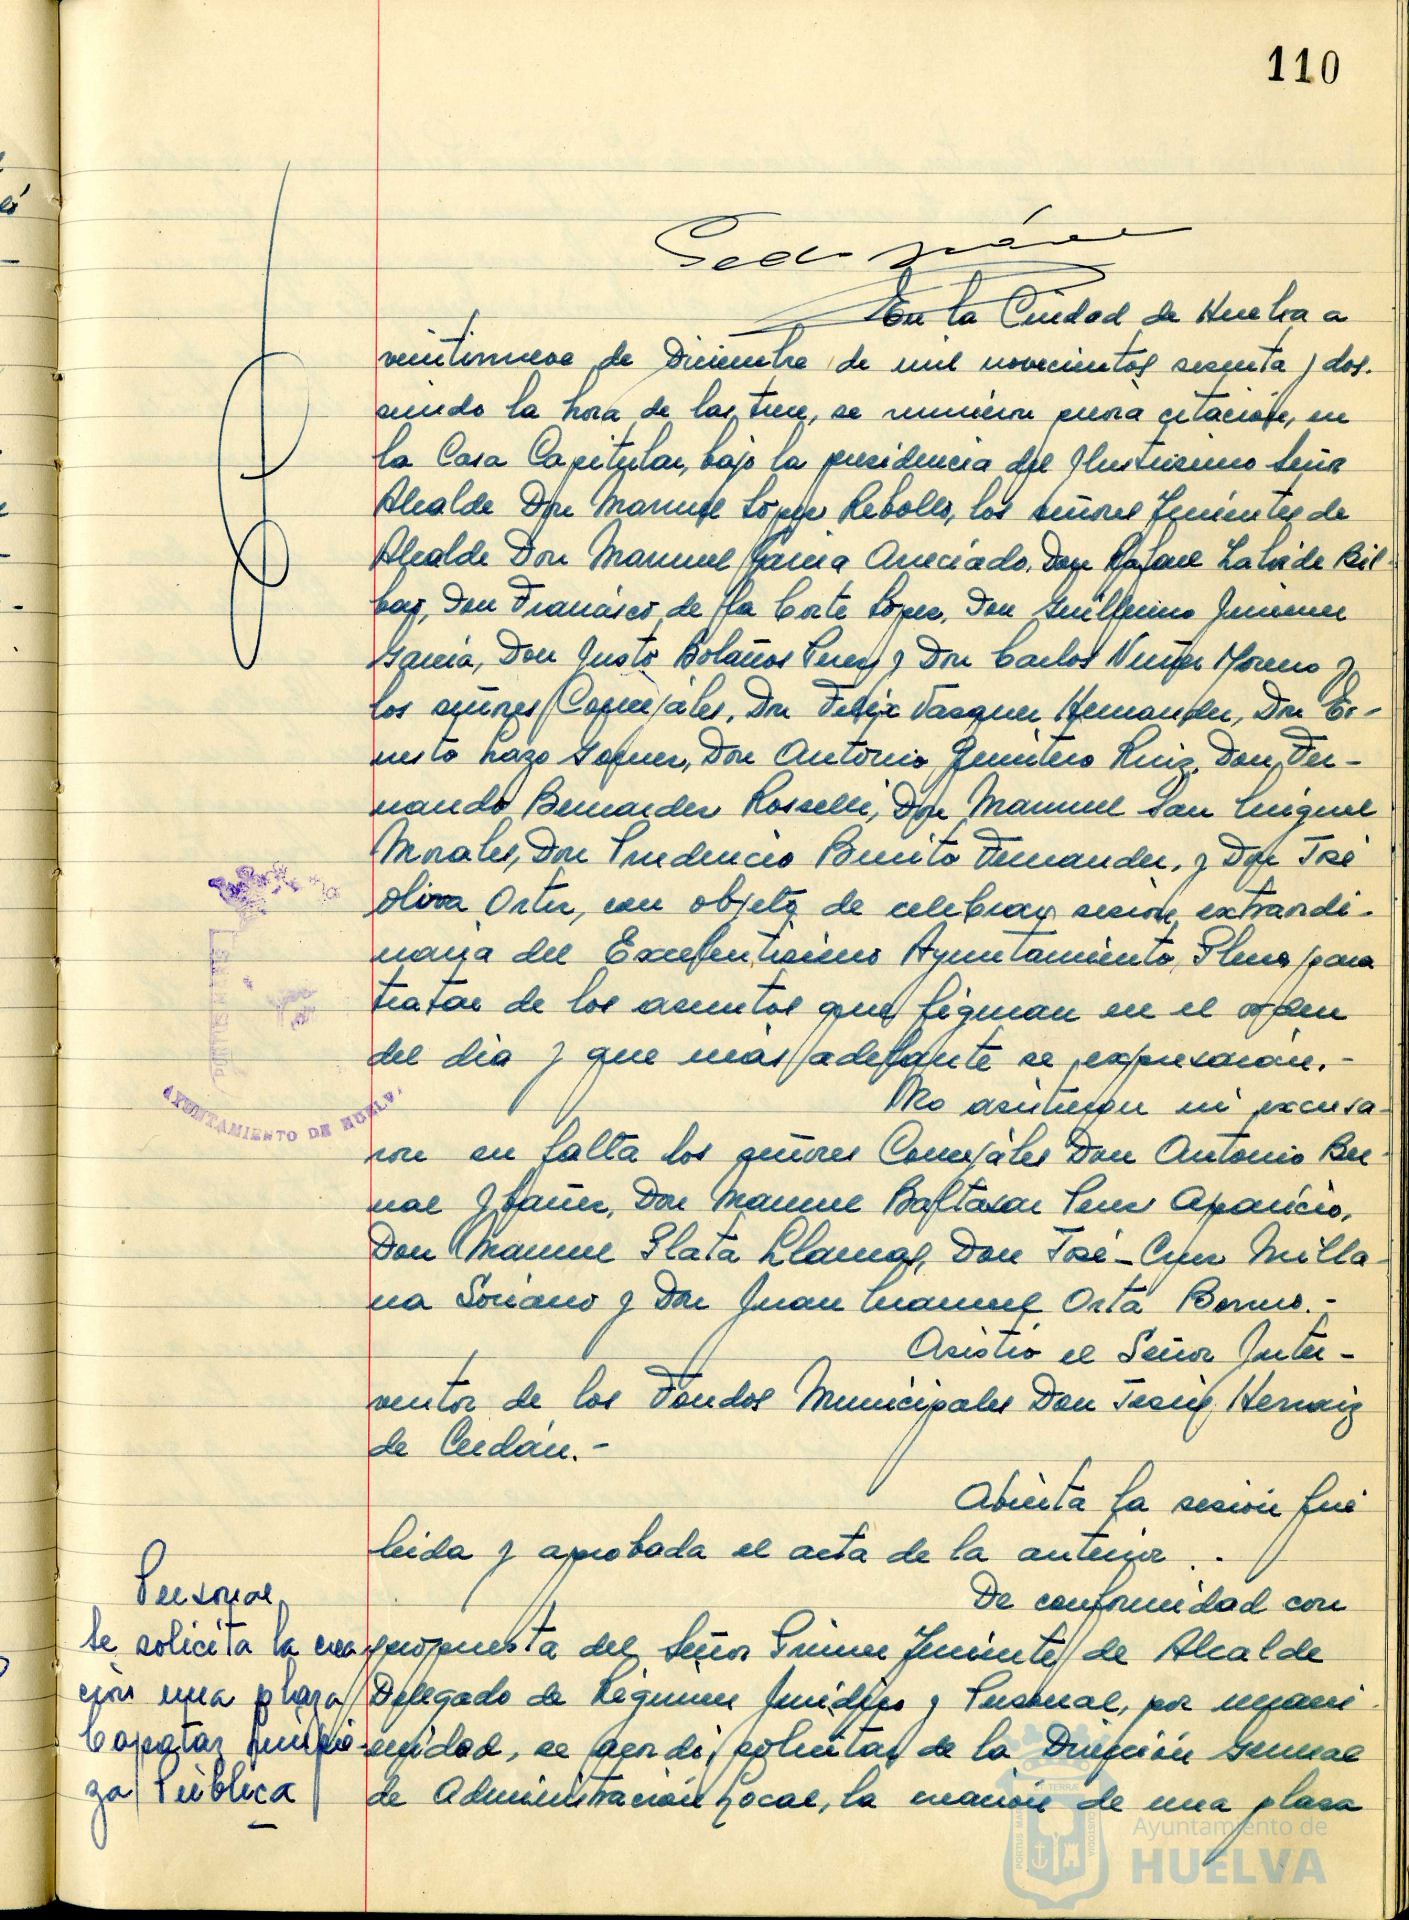 110
En la Ciudad de Huelva a
veintinueve de Diciembre de mil novecientos sesenta y dos.
siendo la hora de las trece, se reunieron previa citación, en
la Casa Capitular, bajo la presidencia del Ilustrisimo Señor
Alcalde Don Manuel López Rebollo, los señores Tenientes de
Alcalde Don Manuel Garcia Aneciado, Don Rafael Labride Bil-
bao, Don Francisco de la Corte López, Don Guillermo Jimenez
Garcia, Don Justo Bolaños Perez y Don Carlos Nuñez Moreno y
los señores Concejales, Don Felix Vazquez Hernandez, Don Er-
nesto Lazo Gomez, Don Antonio Quintero Ruiz, Don Fer-
nando Bernardez Rosselli, Don Manuel San Miguel
Morales, Don Prudencio Benito Fernandez, y Don José
Oliva Ortiz, con objeto de celebrar sesión extraordi-
naria del Excelentisimo Ayuntamiento Pleno para
tratar de los asuntos que figuran en el orden
del dia y que más adelante se expresarán.-
No asistieron ni excusa-
ron su falta los señores Concejales Don Antonio Ber-
nal Ibañez, Don Manuel Baltasar Perez Aparicio,
Don Manuel Plata Llamas, Don José-Cruz Milla-
na Soriano y Don Juan Manuel Orta Borrero.-
Asistió el Señor Inter-
ventor de los Fondos Municipales Don Jesús Hernaiz
de Cerdán.-
Abierta la sesión fué
leida y aprobada el acta de la anterior.-
De conformidad con
propuesta del Señor Primer Teniente de Alcalde
Delegado de Régimen Juridico y Personal, por unani-
midad, se acordó solicitar de la Dirección General
de Administración Local, la creación de una plaza
Personal
Se solicita la crea
ción una plaza
Capataz Limpie-
za Pública
PORTUS MARIS
AYUNTAMIENTO DE HUELVA
PORTUS MARIS
ET TERRÆ
CUSTODIA
Ayuntamiento de
HUELVA